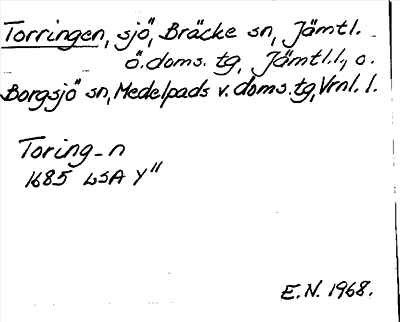 Torringen, sjö, Bräcke sn, Jämtl.
ö. doms. tg, Jämtl.l., o.
Borgsjö sn, Medelpads v. doms. tg, Vrnl. l.
Toring-n
1685 LSA Y"
E.N. 1968.